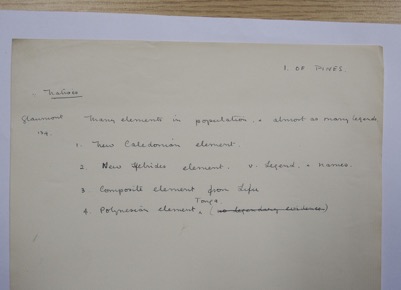 I. OF PINES.
Natives
Glaumont Many elements in population. & almost as many legends
124.
1. New Caledonian element.
2 New Hebrides element. v. Legend. & names.
3 Composite element from Lifu
Tonga
4. Polynesian element, (no legendary evidence)